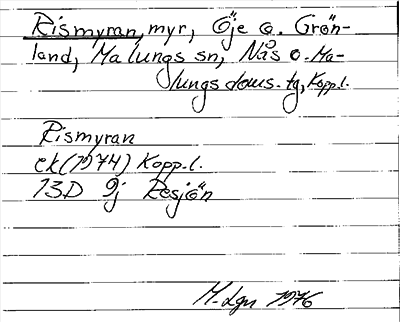 Rismyran, myr, Öje o. Grön-
land, Malungs sn, Nås o. Ma-
lungs doms. tg, Kopp.l.
Rismyran
ek (1974) Kopp.l.
13D 9j Resjön
M. Lgn 1976